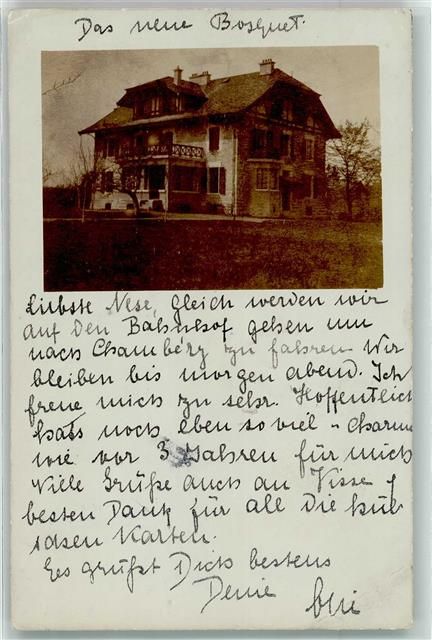 Das neue Bosquet.
Liebste Nese, gleich werden wir
auf den Bahnhof gehen um
nach Chambéry zu fahren Wir
bleiben bis morgen abend. Ich
freue mich zu sehr. Hoffentlich
hats noch eben so viel "Charme
wie vor 3 Jahren für mich
Viele Grüße auch an Visse &
besten Dank für all die hüb
schen Karten.
Es grüßt Dich bestens
Deine